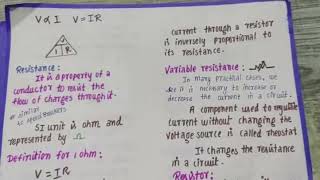 V ∝ I   V = IR
V
I R
Resistance:
It is a property of a
conductor to resist the
flow of charges through it.
SI unit is ohm and
represented by Ω
Definition for 1 ohm:
V = IR
current through a resistor
is inversely proportional to
its resistance.
Variable resistance:
In many practical cases, we
it is necessary to increase or
decrease the current in a circuit.
A component used to regulate
current without changing the
voltage source is called rheostat
It changes the resistance
in a circuit.
Resistor: